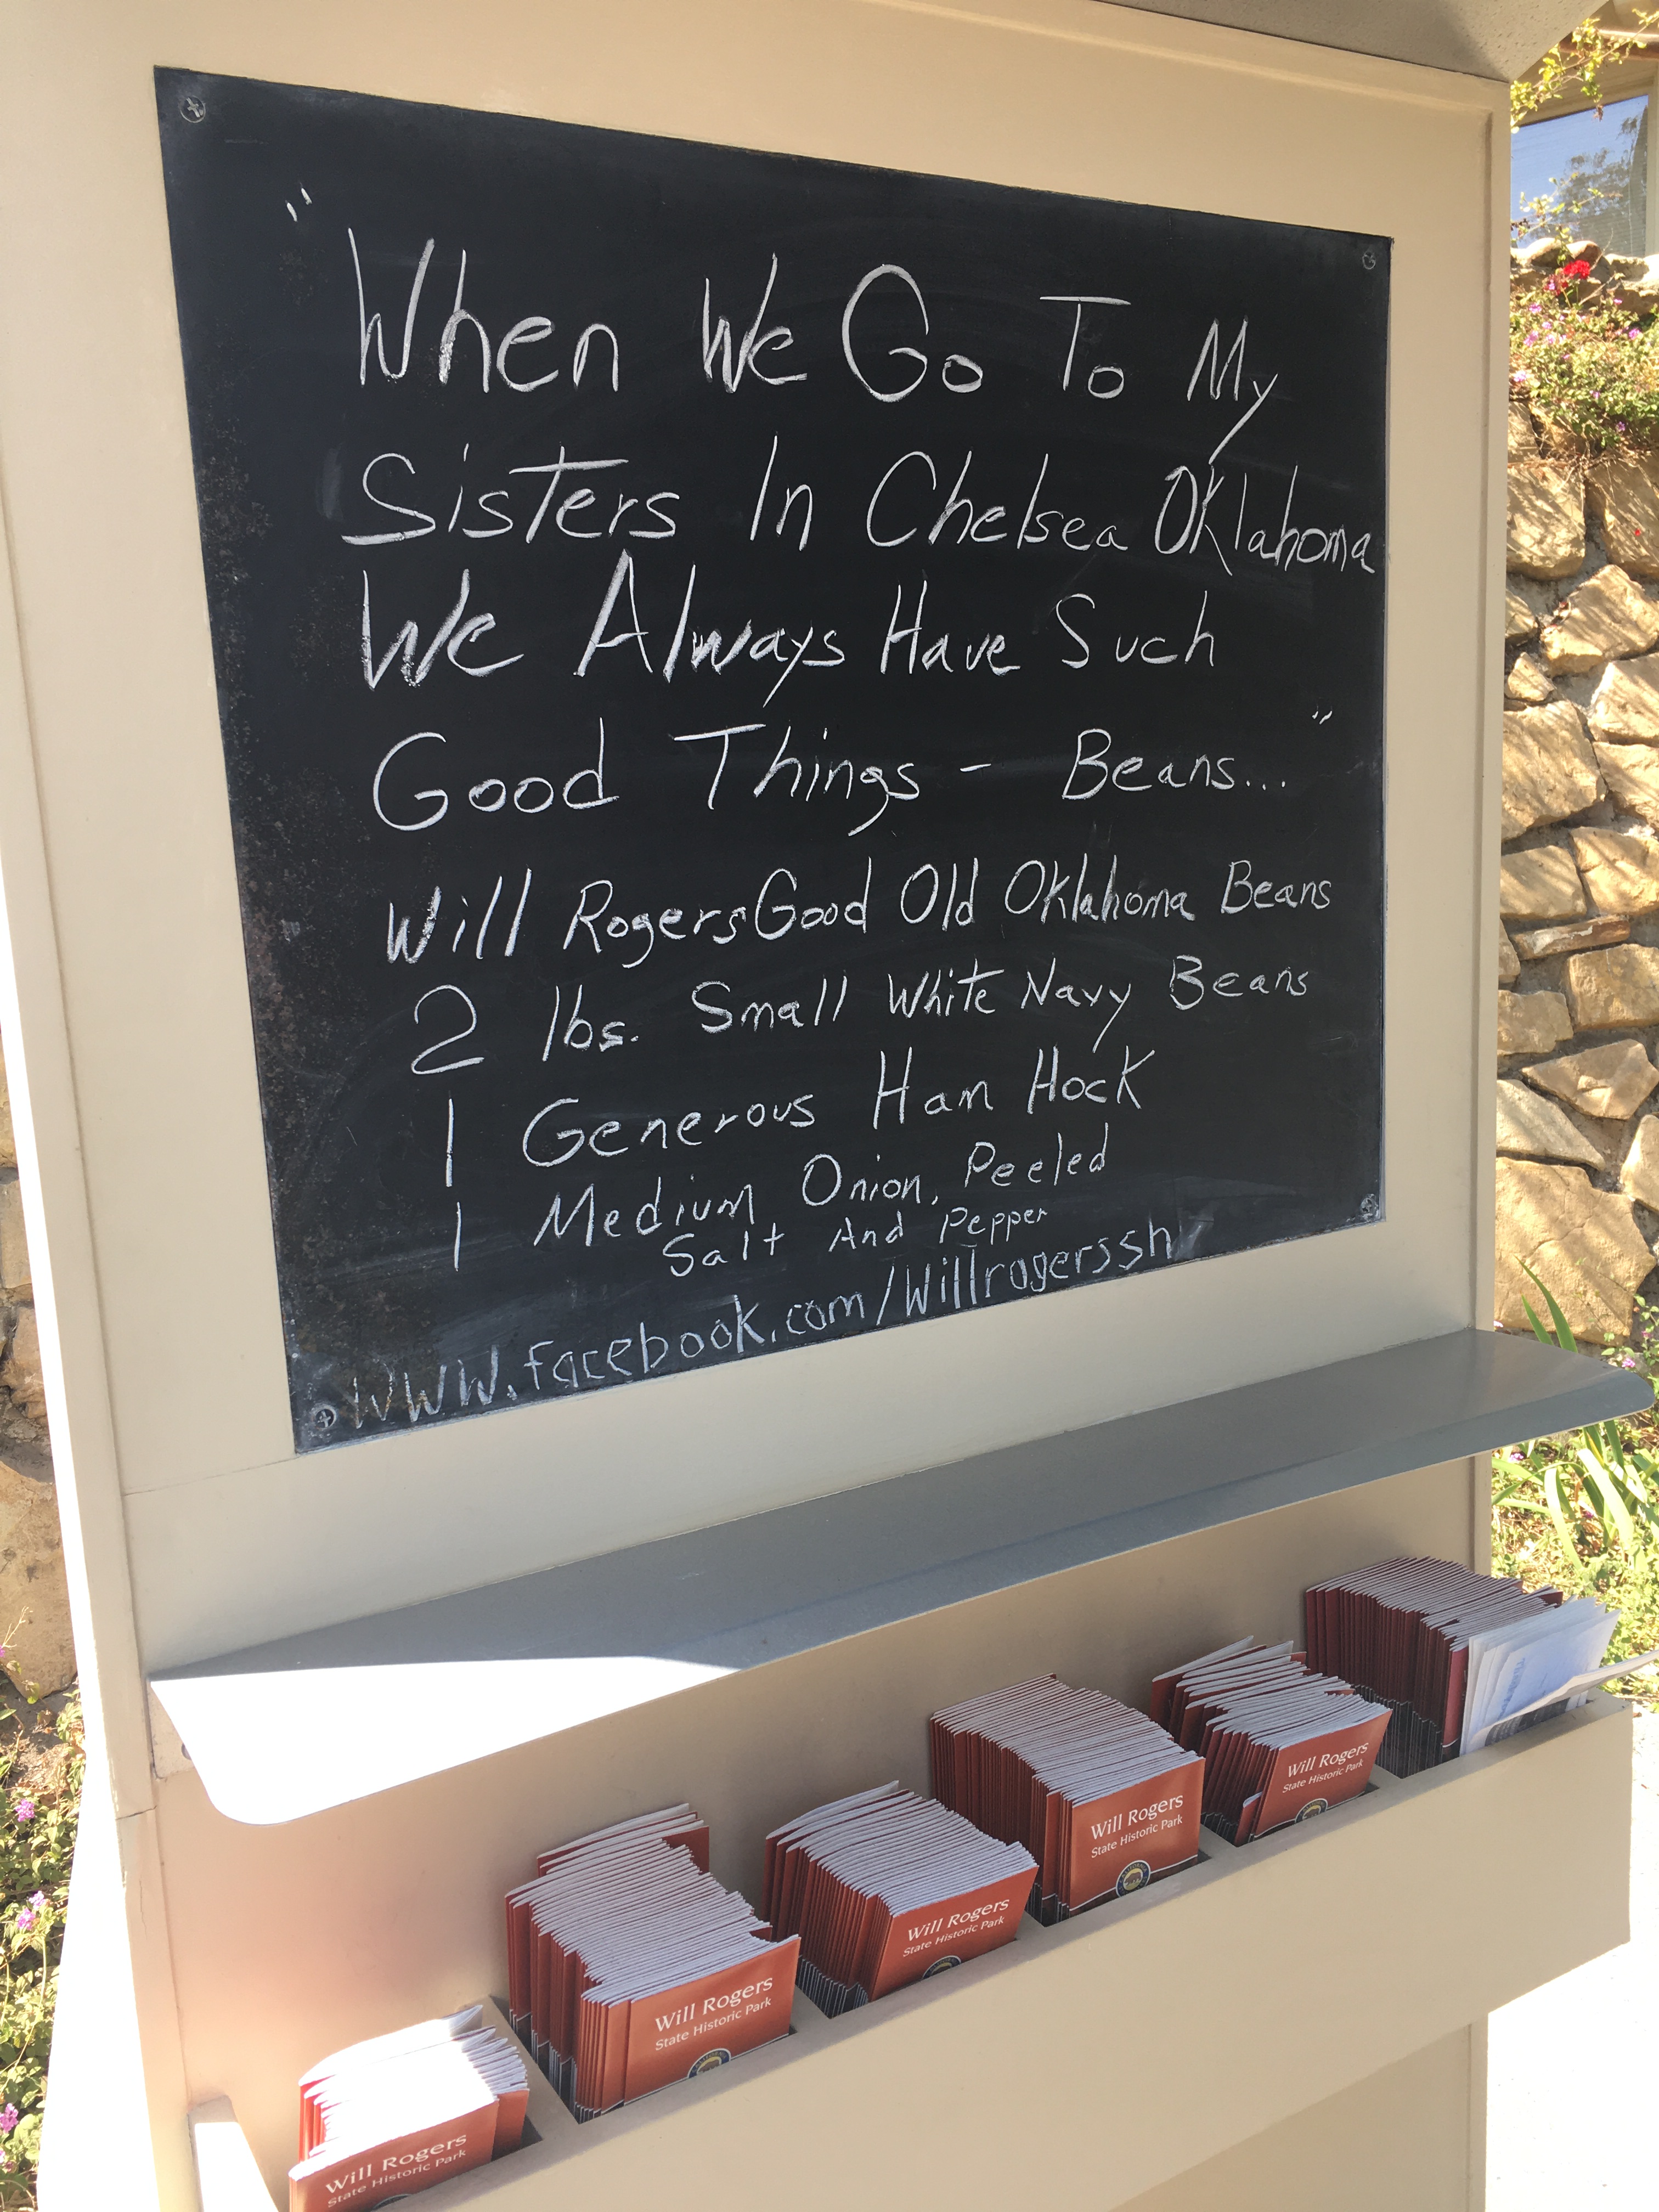 "When We Go To My
Sisters In Chelsea Oklahoma
We Always Have Such
Good Things - Beans..."
Will Rogers Good Old Oklahoma Beans
2 lbs. Small White Navy Beans
1 Generous Ham Hock
1 Medium Onion, Peeled
Salt And Pepper
www.facebook.com/Willrogersshp
Will Rogers
State Historic Park
Will Rogers
State Historic Park
Will Rogers
State Historic Park
Will Rogers
State Historic Park
Will Rogers
State Historic Park